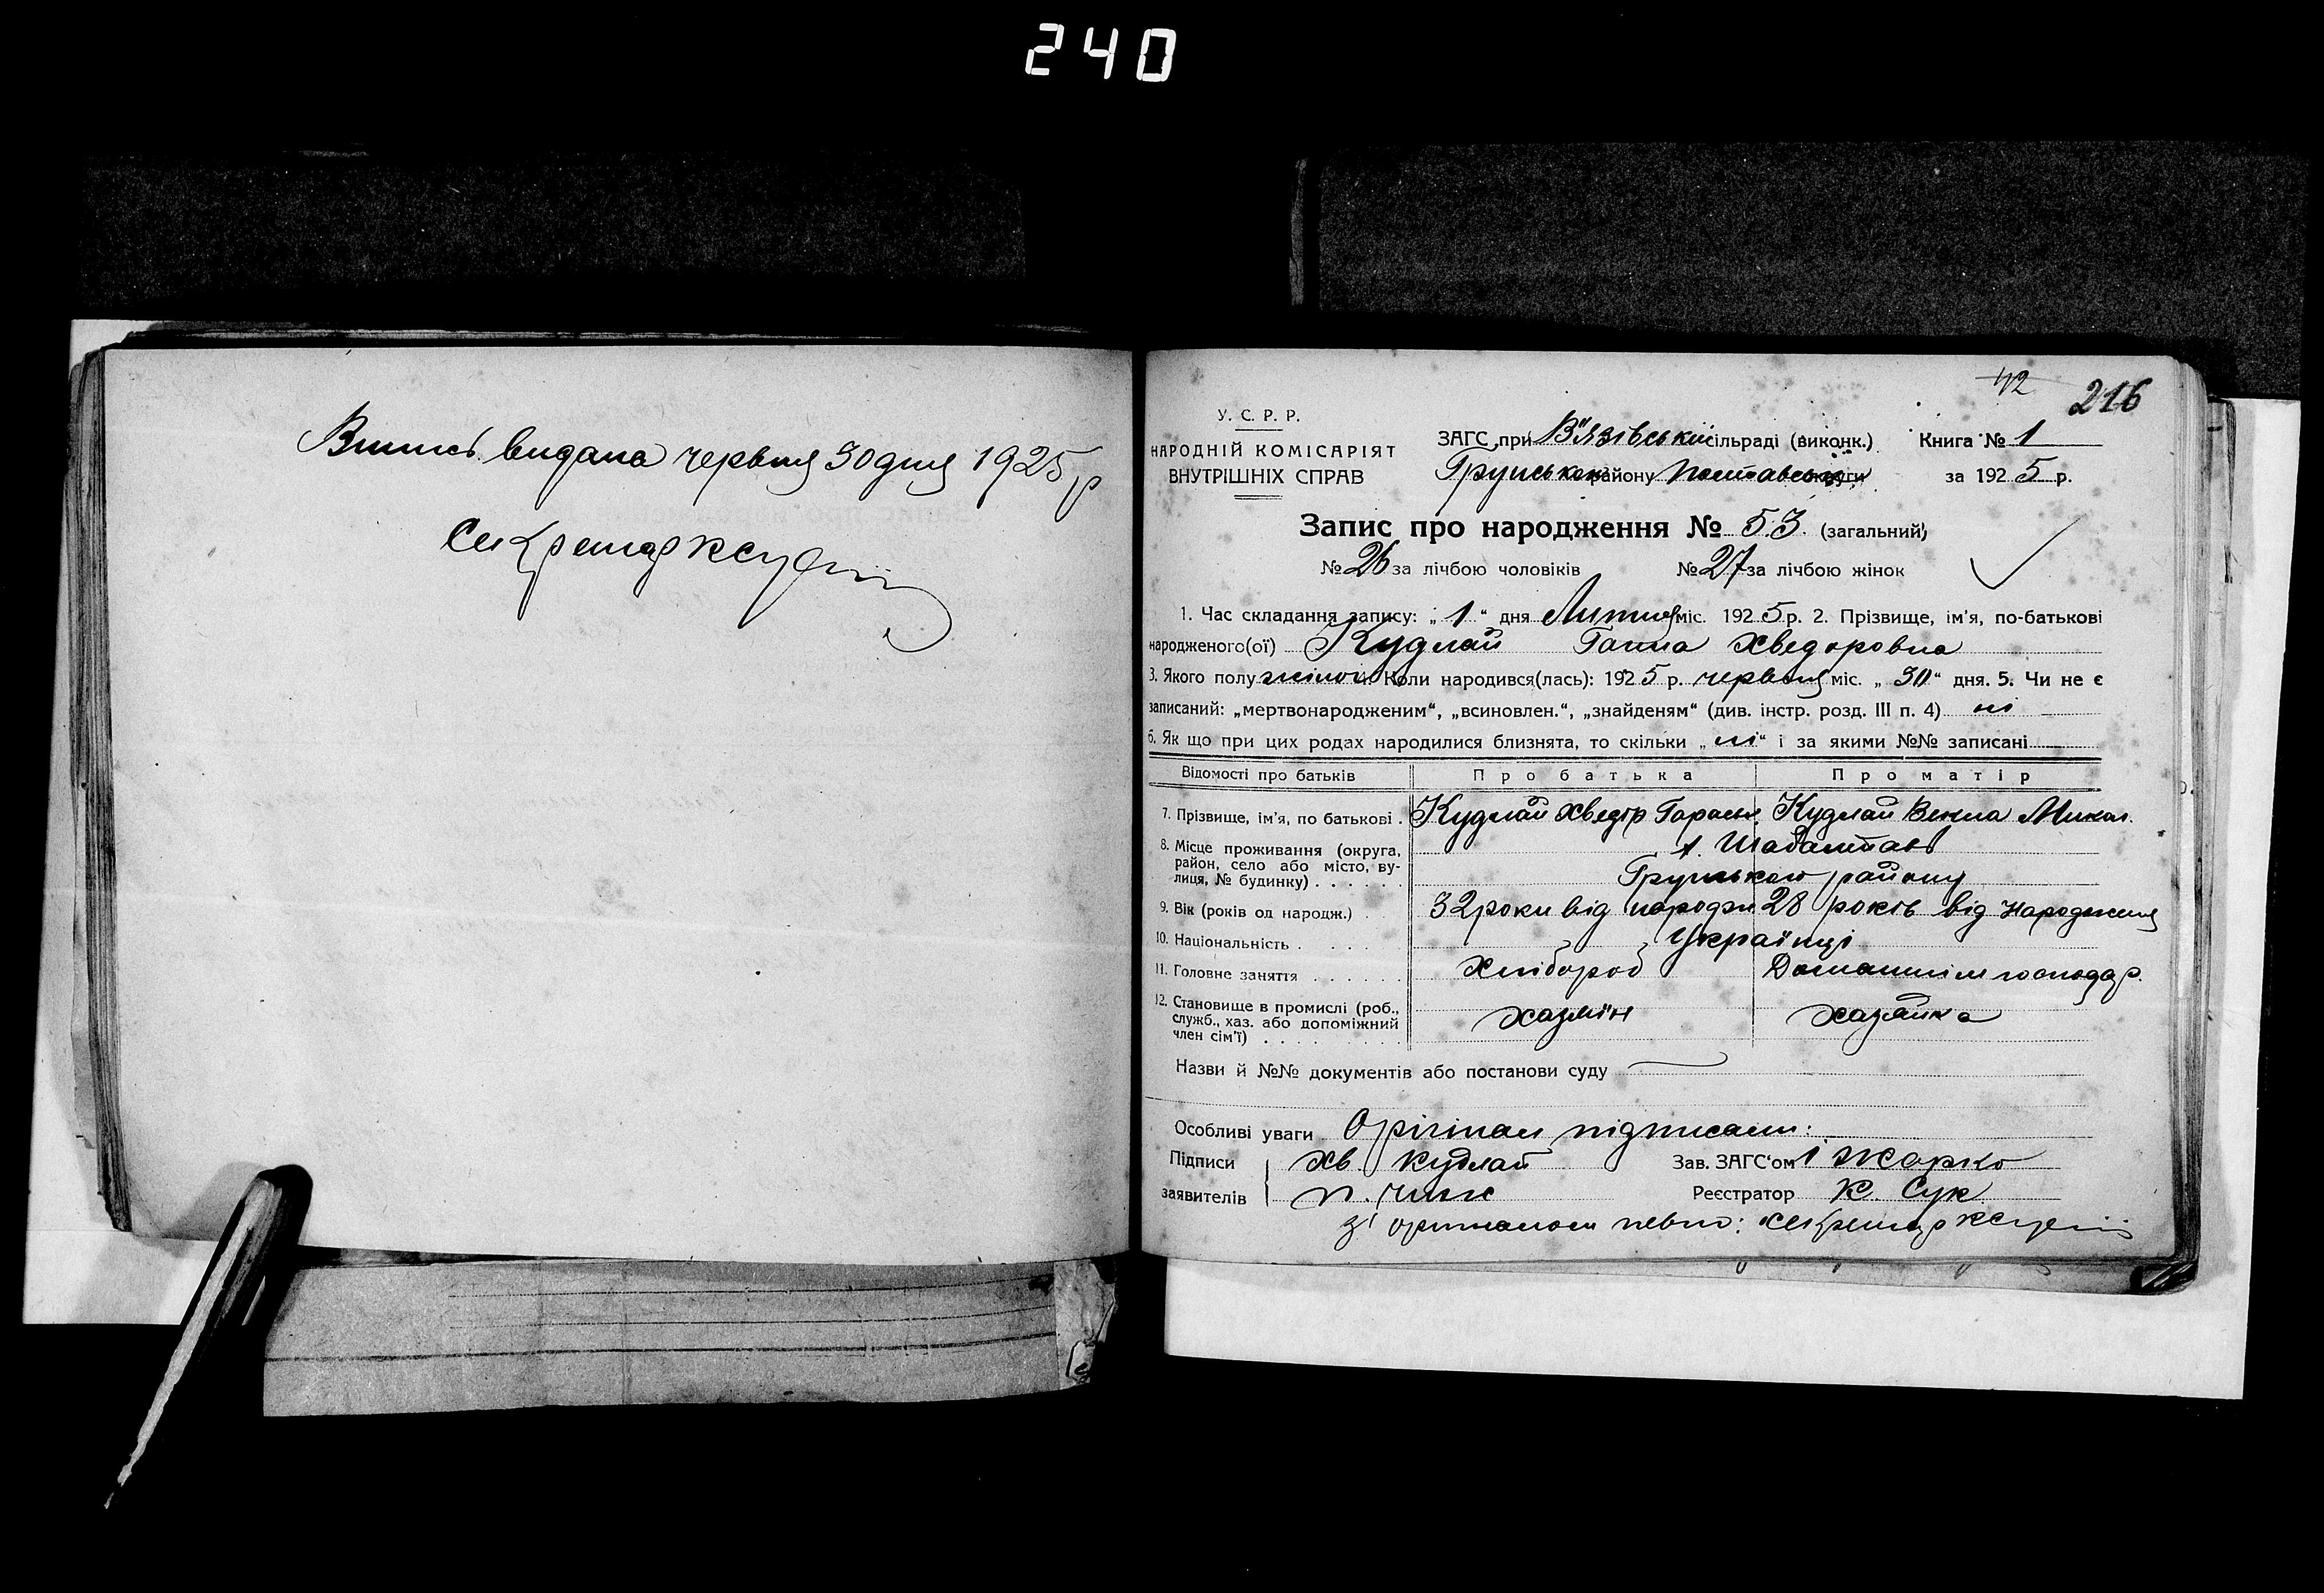 240
Випись видана червня 30 дня 1925 р
Секретар
42 216
У. С. Р. Р.
НАРОДНІЙ КОМІСАРІЯТ
ВНУТРІШНІХ СПРАВ
ЗАГС при В'язівській сільраді (виконк.) Книга № 1
Грунського району Полтавської округи за 1925 р.
Запис про народження № 53. (загальний)
№ 26 за лічбою чоловіків № 27 за лічбою жінок
1. Час складання запису: „1“ дня Липня міс. 1925 р. 2. Прізвище, ім'я, по-батькові
народженого(ої) Кудлай Ганна Хведоровна
3. Якого полу жіноч. Коли народився(лась): 1925 р. червня міс. „30“ дня. 5. Чи не є
записаний: „мертвонародженим“, „всиновлен.“, „знайденям“ (див. інстр. розд. III п. 4) ні
6. Як що при цих родах народилися близнята, то скільки „ні“ і за якими №№ записані
Відомості про батьків Про батька Про матір
7. Прізвище, ім'я, по батькові. Кудлай Хведір Гарасим. Кудлай Векла Микол.
8. Місце проживання (округа,
район, село або місто, ву-
лиця, № будинку) . . . . . .
х. Шабалтаєв
Грунського району
9. Вік (років од народж.) . 32 роки від народж 28 років від народження
10. Національність . . . . . Українці
11. Головне заняття . . . . . . Хлібороб Домашнім господар.
12. Становище в промислі (роб.,
служб., хаз. або допоміжний
член сім'ї) . . . . . . . . .
хазяїн хазяйка
Назви й №№ документів або постанови суду
Особливі уваги Орігінал підписали:
Підписи Хв. Кудлай Зав. ЗАГС'ом І Жарко
заявителів П. Чиж Реєстратор К. Сук
З' оригіналом певно: Секретар